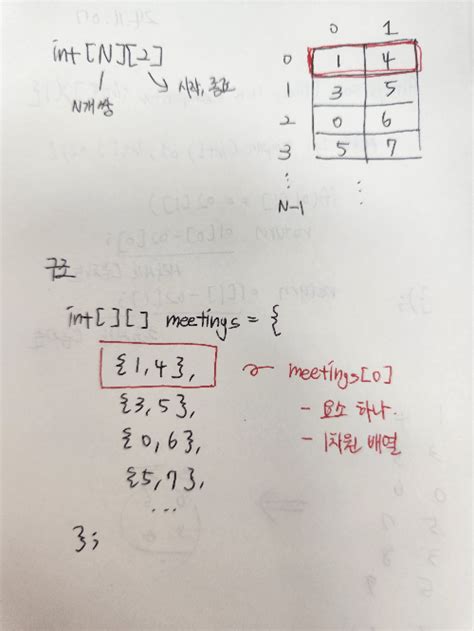 int[N][2]
N개 쌍
시작, 종료
0 1
0 1 4
1 3 5
2 0 6
3 5 7
⋮ ⋮
N-1
구조
int[][] meetings = {
{1,4}, ~ meetings[0]
{3,5}, - 요소 하나.
{0,6}, - 1차원 배열
{5,7},
...
};